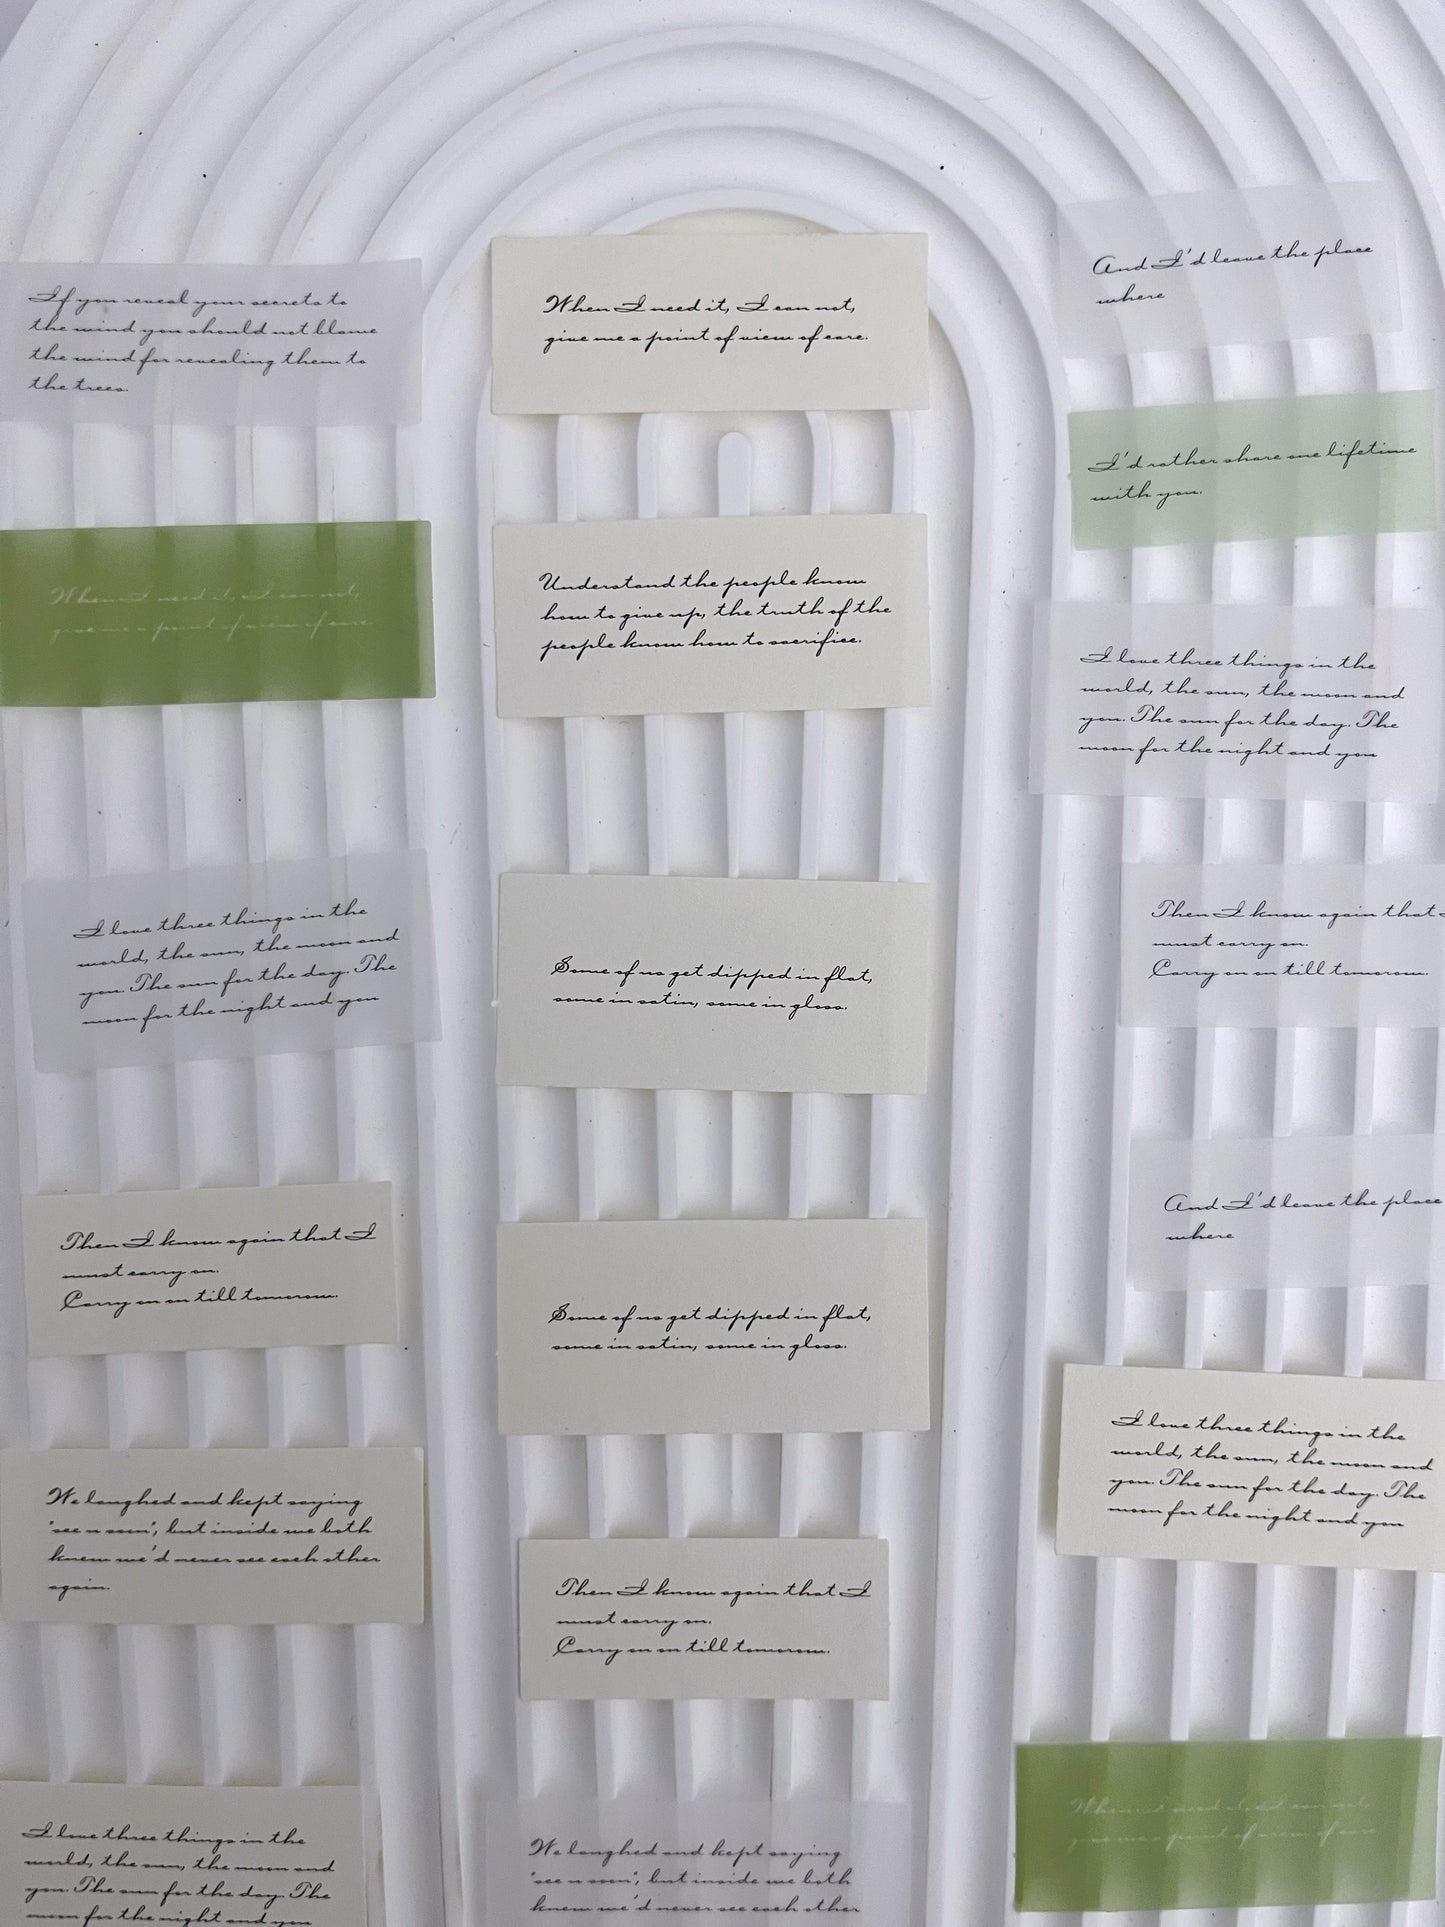 If you reveal your secrets to
the wind you should not blame
the wind for revealing them to
the trees.
When I need it, I can not,
give me a point of view of care.
I love three things in the
world, the sun, the moon and
you. The sun for the day. The
moon for the night and you
Then I know again that I
must carry on.
Carry on on till tomorow.
We laughed and kept saying
"see u soon", but inside we both
knew we'd never see each other
again.
I love three things in the
world, the sun, the moon and
you. The sun for the day. The
moon for the night and you
When I need it, I can not,
give me a point of view of care.
Understand the people know
how to give up, the truth of the
people know how to sacrifice.
Some of us get dipped in flat,
some in satin, some in gloss.
Some of us get dipped in flat,
some in satin, some in gloss.
Then I know again that I
must carry on.
Carry on on till tomorow.
We laughed and kept saying
"see u soon", but inside we both
knew we'd never see each other
And I'd leave the place
where
I'd rather share one lifetime
with you.
I love three things in the
world, the sun, the moon and
you. The sun for the day. The
moon for the night and you
Then I know again that I
must carry on.
Carry on on till tomorow.
And I'd leave the place
where
I love three things in the
world, the sun, the moon and
you. The sun for the day. The
moon for the night and you
When I need it, I can not,
give me a point of view of care.